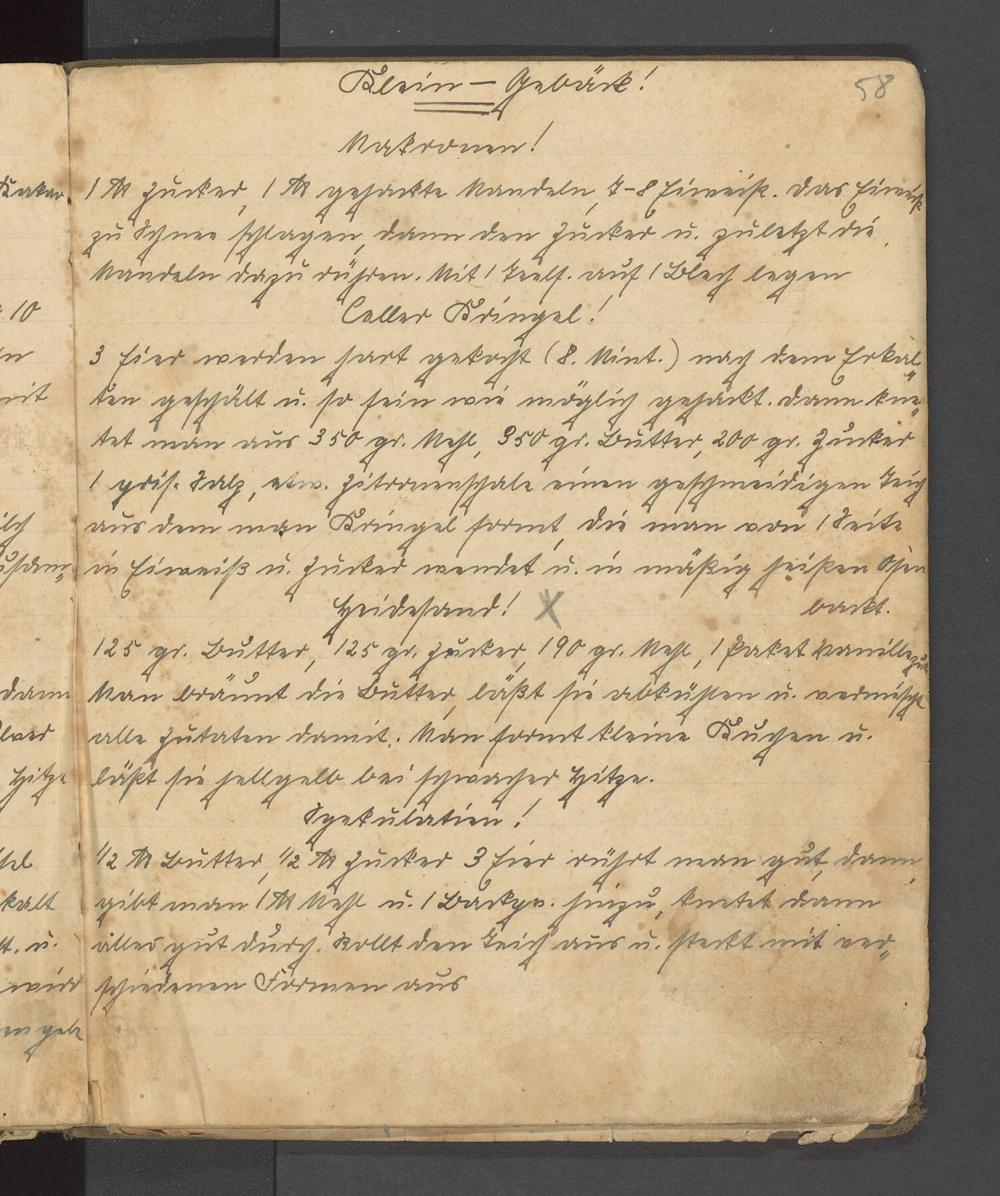 58
Klein – Gebäck!
Makronen!
1 ℔ Zucker, 1 ℔ gehackte Mandeln, 7-8 Eiweiß. Das Eiweiß
zu Schnee schlagen, dann den Zucker u. zuletzt die
Mandeln dazu rühren. Mit 1 Teelf. auf 1 Blech legen
Celler Kringel!
3 Eier werden hart gekocht (8. Mint.) nach dem Erkal-
ten geschält u. so fein wie möglich gehackt. Dann kne-
tet man aus 350 gr. Mehl, 350 gr. Butter, 200 gr. Zucker
1 Pris. Salz, etw. Zitronenschale einen geschmeidigen Teig
aus dem man Kringel formt, die man von 1 Seite
in Eiweiß u. Zucker wendet u. in mäßig heißen Ofen
backt.
Heidesand! X
125 gr. Butter, 125 gr. Zucker, 190 gr. Mehl, 1 Paket Vanillezuck
Man bräunt die Butter, läßt sie abkühlen u. vermischt
alle Zutaten damit. Man formt kleine Kuchen u.
läßt sie hellgelb bei schwacher Hitze.
Spekulatien!
1/2 ℔ Butter, 1/2 ℔ Zucker 3 Eier rührt man gut, dann
gibt man 1 ℔ Mehl u. 1 Backpv. hinzu, knetet dann
alles gut durch. Rollt den Teich aus u. steckt mit ver-
schiedenen Formen aus